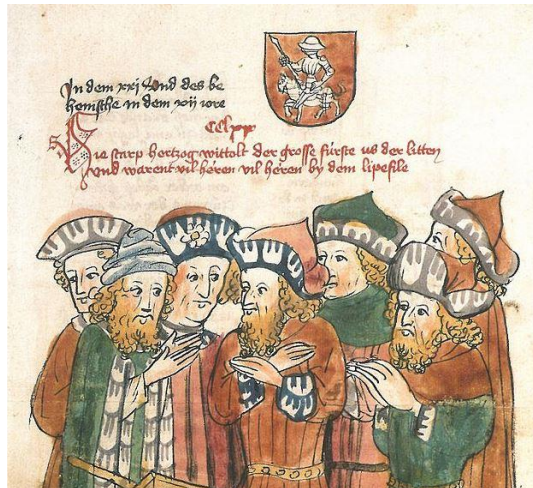 In dem xxj Jond des be
hemische in dem xvij iore
CClxx
Hie starp hertzog wittolt der grosse fürste us der litten
vnd warent vil heren vil heren by dem lipefile